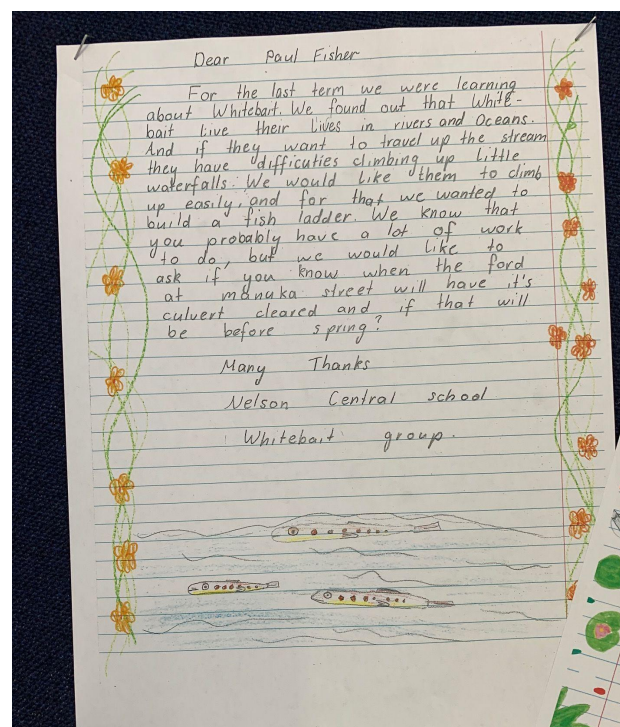 Dear Paul Fisher
For the last term we were learning
about Whitebait. We found out that White-
bait live their lives in rivers and Oceans.
And if they want to travel up the stream
they have difficuties climbing up little
waterfalls. We would like them to climb
up easily, and for that we wanted to
build a fish ladder. We know that
you probably have a lot of work
to do, but we would like to
ask if you know when the ford
at manuka street will have it's
culvert cleared and if that will
be before spring?
Many Thanks
Nelson Central school
Whitebait group.